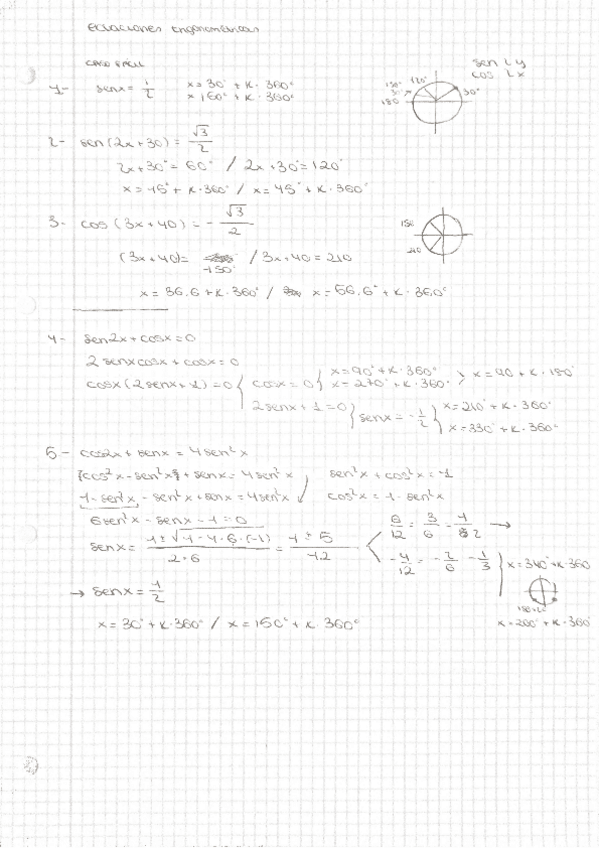 ecuaciones trigonométricas
caso fácil
sen Ly
cos Lx
1- senx = 1/2 x = 30° + K·360°
x = 150° + K·360°
150° 120° 30°
180
2- sen(2x+30) = √3/2
2x+30° = 60° / 2x+30° = 120°
x = 15° + K·360° / x = 45° + K·360°
3- cos(3x+40) = -√3/2
150
210
(3x+40) = 150° / 3x+40 = 210
x = 36.6 + K·360° / x = 56.6° + K·360°
4- sen2x + cosx = 0
2 senx cosx + cosx = 0
cosx(2senx+1) = 0 { cosx = 0 { x = 90° + K·360° x = 270° + K·360° } x = 90 + K·180°
2senx + 1 = 0 { senx = -1/2 { x = 210° + K·360°
x = 330° + K·360°
5- cos2x + senx = 4sen²x
(cos²x - sen²x) + senx = 4sen²x sen²x + cos²x = 1
1 - sen²x - sen²x + senx = 4sen²x cos²x = 1 - sen²x
6sen²x - senx - 1 = 0
senx = (1 ± √(1 - 4·6·(-1))) / (2·6) = (1 ± 5) / 12 < 6/12 = 3/6 = 1/2 →
-4/12 = -2/6 -1/3 } x = 340° + K·360
→ senx = 1/2
x = 30° + K·360° / x = 150° + K·360° x = 200° + K·360°